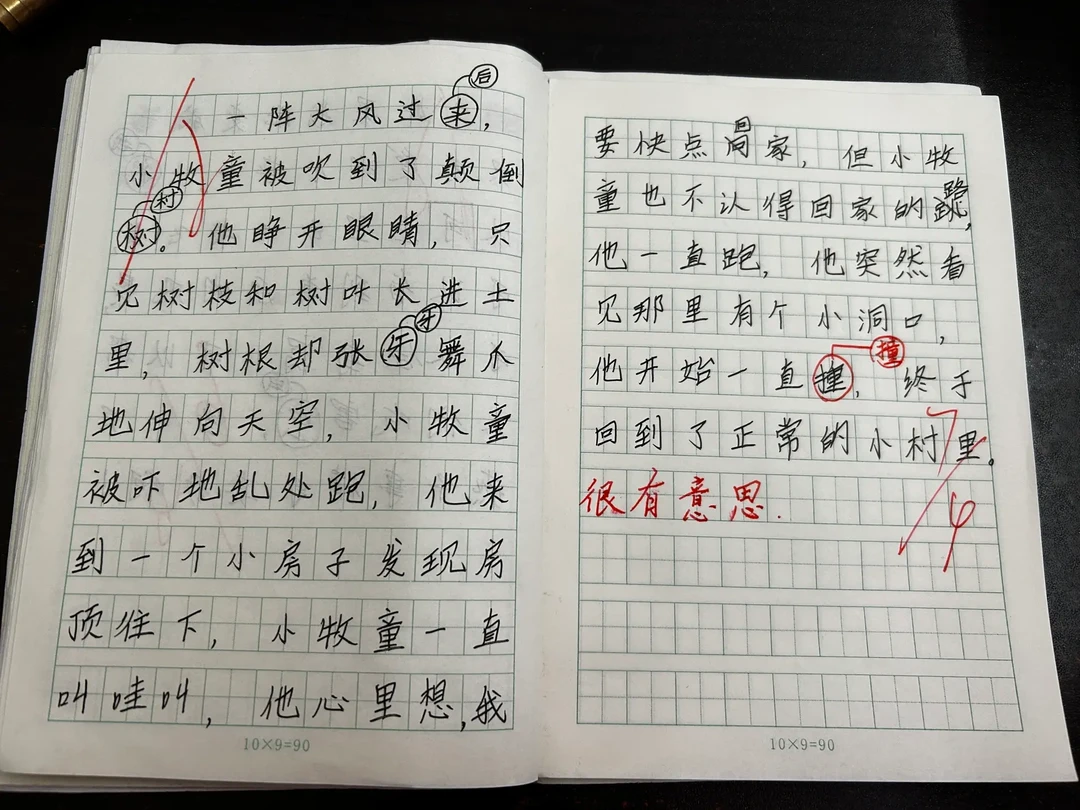 后
一阵大风过来，
小牧童被吹到了颠倒
村
树。他睁开眼睛，只
见树枝和树叶长进土
牙
里，树根却张牙舞爪
地伸向天空，小牧童
被吓地乱处跑，他来
到一个小房子发现房
顶往下，小牧童一直
叫哇叫，他心里想，我
10×9=90
回
要快点向家，但小牧
路
童也不认得回家的跳，
他一直跑，他突然看
见那里有个小洞口，
撞
他开始一直撞，终于
回到了正常的小村里。
很有意思.
10×9=90